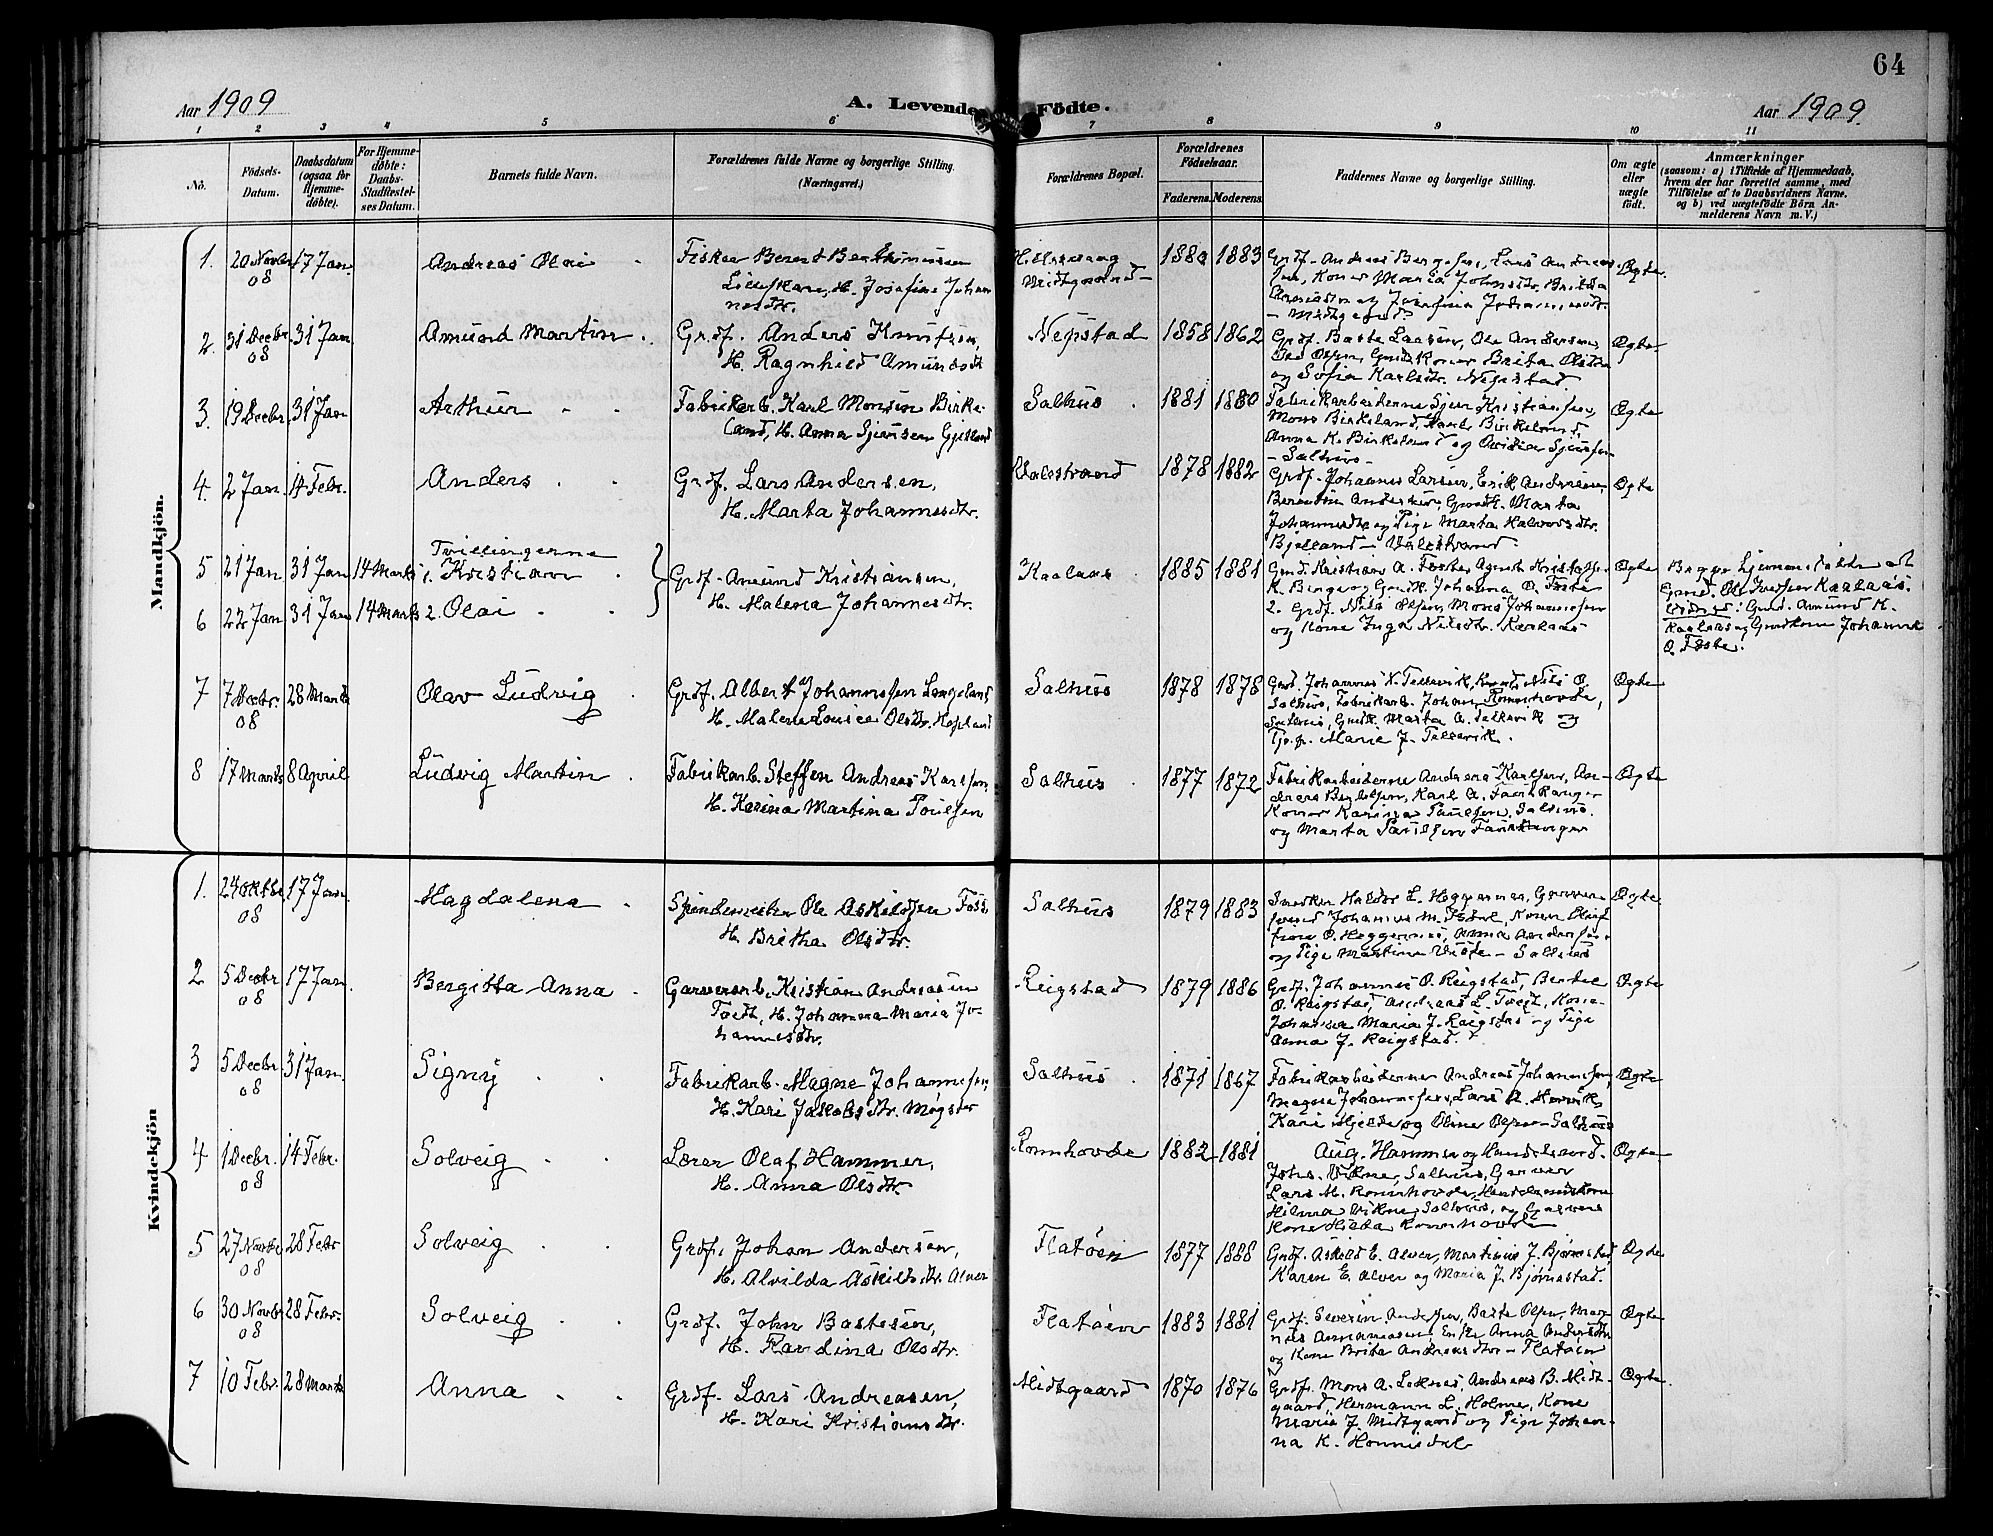 64
Aar 1909
A. Levende Födte.
Aar 1909.
1 2 3 4 5 6 7 8 9 10 11
No.
Födsels-
Datum.
Daabsdatum
(ogsaa for
Hjemme-
døbte).
For Hjemme-
døbte:
Daabs-
Stadfæstel-
ses Datum.
Barnets fulde Navn.
Forældrenes fulde Navne og borgerlige Stilling.
(Næringsvei.)
Forældrenes Bopæl.
Forældrenes
Födselsaar.
Faderens. Moderens.
Faddernes Navne og borgerlige Stilling.
Om ægte
eller
uægte
født.
Anmærkninger
(saasom: a) i Tilfælde af Hjemmedaab,
hvem der har forrettet samme, med
Tilföielse af to Daabsvidners Navne.
og b) ved uægtefödte Börn An-
melderens Navn m. V.)
Mandkjön.
1. 20 Novbr 08 17 Jan Andreas Olai Fisker Berent
H. Josefine Johan
nesdtr.
Midtgaard 1883 Grdf. Andreas
Ægte
2. 31 Decbr 08 31 Jan Amund Martin Grdf. Anders Knutsen,
H. Ragnhild Amundsdtr
Nepstad 1858 1862 Grdf. Baste Larsen, Ole Andersen
Brita
og Sofia Karlsdtr. Nepstad.
Ægte
3. 19 Decbr. 31 Jan Arthur Fabrikarb. Karl Monsen Birke-
land, H. Anna
Salhus 1881 1880 Fabrikarbeiderne
Mons Birkeland, Karl Birkeland,
Anna K. Birkeland og
- Salhus -
Ægte
4. 2 Jan. 14 Febr. Anders Grdf. Lars Andersen,
H. Marta Johannesdtr.
Valestrand 1878 1882 Grdf. Johannes Larsen, Erik
Johannesdtr og Pige Marta Halvorsdtr.
Bjelland - Valestrand.
Ægte
Tvillingerne
5 21 Jan 31 Jan 14 Marts 1. Kristian
6 22 Jan 31 Jan 14 Marts 2. Olai
Grdf. Amund Kristiansen,
H. Malena Johannesdtr.
Kaalaas 1885 1881 Gmd. Kristian A. Foster, Agnete
K. Berge og Gmdk. Johanna O. Foste
2. Grdf. Nils Olsen, Mons Johannesen
og Kone Inga Nilsdtr. Kaalaas
Ægte
Begge hjemmedøbte af
Gmd. Ole Iversen Kaalaas.
Vidner: Gmd. Amund K.
Kaalaas og Gmdkone Johanna
O. Foste.
7 7 Decbr. 08 28 Marts Olav Ludvig Grdf. Albert Johannesen Langeland
H. Malene Louise Olsdtr.
Salhus 1878 1878 Gmd. Johannes N. Tellevik, Nils O.
Salhus, Fabrikarb. Johan Romnhovde,
Salhus, Gmdk. Marta A. Tellevik og
Marie J. Tellevik.
Ægte
8 17 Marts 8 April Ludvig Martin Fabrikarb. Steffen Andreas Karlsen,
H. Karina Martina Poulsen
Salhus 1877 1872 Fabrikarbeiderne Andreas Karlsen, An-
Karl A.
Koner Karina Paulsen, Salhus
og Marta Paulsen
Ægte
Kvindekjön
1. 24 Oktbr 08 17 Jan. Magdalena Spindemester Ole Askildsen Foss,
H. Britha Olsdtr.
Salhus 1879 1883 Snedker Haldor L. Heggernes,
svend Johannes M.
O. Heggernes, Anna
og Pige Martina - Salhus
Ægte
2 5 Decbr 08 17 Jan. Bergitta Anna Garverarb. Kristian Andreassen
Tveit, H. Johanna Maria Jo-
hannesdtr.
Reigstad 1879 1886 Grdf. Johannes O. Reigstad,
O. Reigstad, Andreas L. Tveit, Kone
Johanna Maria J. Reigstad og Pige
Anna J. Reigstad.
Ægte
3 5 Decbr 08 31 Jan. Signy Fabrikarb. Magne Johannesen,
H. Kari Jakobsdtr. Møgster
Salhus 1871 1867 Fabrikarbeiderne Andreas Johannesen,
Magne Johannesen, Lars A.
Kari Hjelde og Oline Olsen - Salhus
Ægte
4 1 Decbr. 08 14 Febr. Solveig Lærer Olaf Hammer,
H. Anna Olsdtr.
Romnhovde 1882 1881 Aug. Hammer og
Johs. Vikne, Salhus, Garver
Lars M. Romnhovde,
Hilma Vikne, Salhus, og Garver
Kone Hilda Romnhovde
Ægte
5 27 Novbr 08 28 Febr Solveig Grdf. Johan Andersen,
H. Alvilda Askildsdtr. Alver
Flatøen 1877 1888 Grdf. Askild E. Alver, Martinus J. Bjørnestad,
Karen E. Alver og Maria J. Bjørnestad.
Ægte
6 30 Novbr 08 28 Febr. Solveig Grdf. John Bastesen,
H. Ravdina Olsdtr.
Flatøen 1883 1881 Grdf. Severin Andersen, Baste Olsen,
Enke Anna Andersdtr
og Kone Brita Andreasdtr - Flatøen
Ægte
7 10 Febr. 28 Marts Anna Grdf. Lars Andreasen,
H. Kari Kristiansdtr.
Midtgaard 1870 1876 Grdf. Mons A. Leknes, Andreas B. Midt-
gaard, Hermann L. Holme, Kone
Marie J. Midtgaard og Pige Johan-
na K. Hommisdal
Ægte